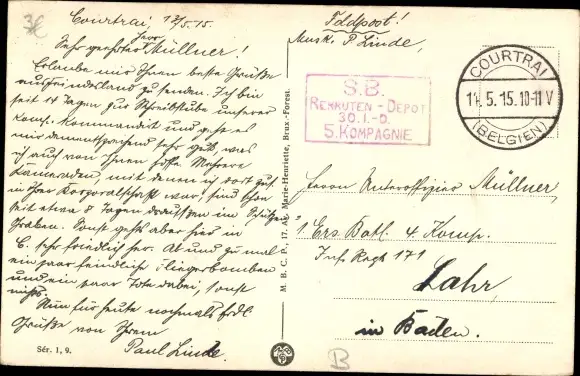 Courtrai, 13/5.15.
Sehr geehrter Herr Müllner!
Erlaube mir Ihnen beste Grüße
aus Feindesland zu senden. Ich bin
seit 14 Tagen zur Schreibstube unserer
Komp. kommandirt und geht es
mir dementsprechend sehr gut, was
ich auch von Ihnen hoffe. Mehrere
Kameraden, mit denen ich dort zus.
in Ihrer Korporalschaft war, sind schon
seit etwa 8 Tagen draußen im Schützen
Graben. Sonst geht's aber hier in
C. sehr friedlich her. Ab und zu mal
ein paar feindliche Fliegerbomben
und ein paar Tote dabei, sonst
nichts.
Nun für heute nochmals frdl.
Grüße von Ihrem
Paul Linde.
Sér. 1, 9.
M. B. C. P., 17, Av. Marie-Henriette, Brux.-Forest.
Feldpost!
Musk. P. Linde,
S.B.
REKRUTEN-DEPOT
5. KOMPAGNIE
COURTRAI
14. 5. 15. 10-11 V
(BELGIEN)
Herrn Unteroffizier Müllner,
1 Ers. Batl. 4. Komp.
Inf. Regt 171
Lahr,
in Baden.
B